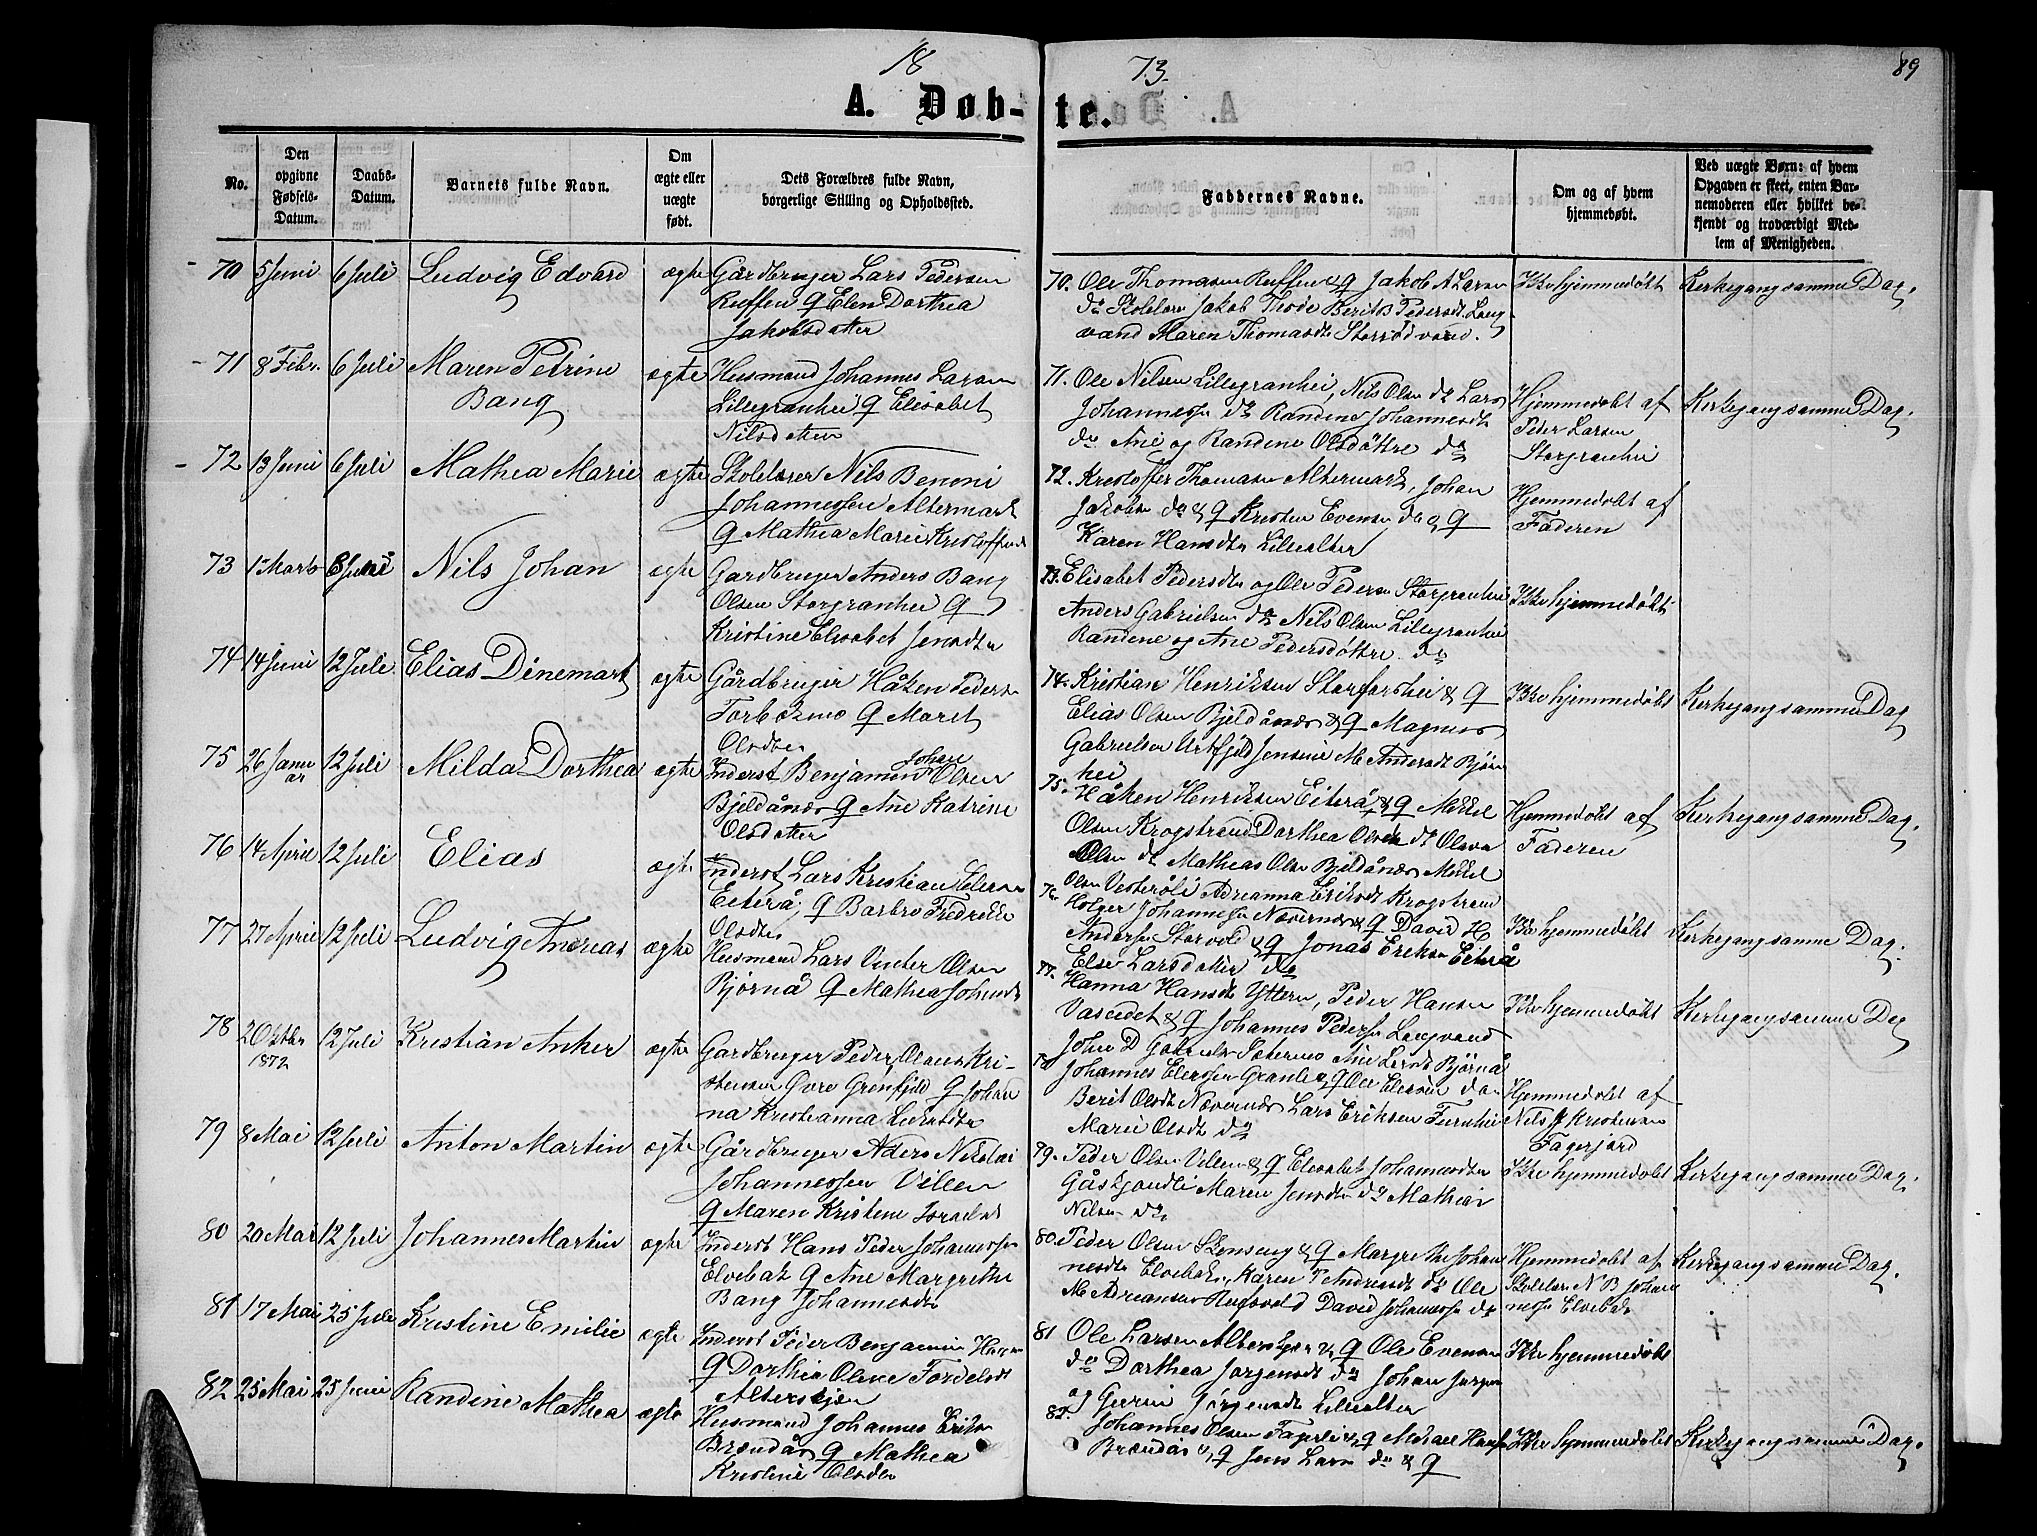 18 73. 89
A. Døb-te.
No.
Den opgivne Fødsels-Datum.
Daabs-Datum.
Barnets fulde Navn.
Om ægte eller uægte født.
Dets Forældres fulde Navn, borgerlige Stilling og Opholdssted.
Faddernes Navne.
Om og af hvem hjemmedøbt.
Ved uægte Børn: af hvem Opgaven er skeet, enten Barnemoderen eller hvilket bekjendt og troværdigt Medlem af Menigheden.
70 5 Juni 6 Juli Ludvig Edvard ægte Gårdbruger Lars Pedersen
Ruffen & Elen Dorthea
Jakobsdatter
70. Ole Thomasen Ruffen & Jakob A Larsen
do Skolelær Jakob Thode Berit B Pedersdt Lang
vand Maren Thomasdt
Ikke hjemmedøbt Kirkegang samme Dag.
71 8 Febr. 6 Juli Maren Petrine
Bang
ægte Husmand Johannes Larsen
Lillegranhei & Elisabet
Nilsdatter
71. Ole Nilsen Lillegranhei, Nils Olsen do Lars
Johannessen do Randine Johannesdt
do Ane og Randine Olsdøttre do
Hjemmedøbt af
Peder Larsen
Storgranhei
Kirkegang samme Dag.
72 13 Juni 6 Juli Mathea Marie ægte Skolelærer Nils Benoni
Johannessen Altermark
& Mathea Marie Kristoffersdt
72. Kristoffer Thomasen Altermark, Johan
Jakobsen do & Kristen Evensen do &
Karen Hansdtr Lillealter
Hjemmedøbt af
Faderen
73 1 Marts 6 Juli Nils Johan ægte Gardbruger Anders Bang
Olsen Storgranhei &
Kristine Elisabet Jensdtr
73. Elisabet Pedersdtr og Ole Pedersen Storgranhei
Anders Gabrielsen do Nils Olsen Lillegranhei
Randine og Ane Pedersdøttre do
Ikke hjemmedøbt
74 14 Juni 12 Juli. Elias Dinemart ægte Gårdbruger Håken Peders
& Marit
Olsdtr
74. Kristian Henriksen Storforshei &
Elias Olsen Bjeldånæs & Magnus
Gabrielsen Urtfjeld Jensine M. Andersdt Bjørn
hei
Ikke hjemmedøbt Kirkegang samme Dag
75 26 Janu
ar 12 Juli Milda Dorthea ægte Johan
Inderst Benjamin Olsen
Bjeldånæs & Ane Katrine
Olsdatter
75. Håken Henriksen Eiterå & Mikkel
Olsen Krogstrand Dorthea Olsdt do Olava
Olsn do Mathias Olsn Bjeldånæs Mikkel
Olsn Adrianna Krogstrand
Hjemmedøbt af
Faderen
Kirkegang samme Dag.
76 14 April 12 Juli Elias ægte Inderst Lars Kristian Elias
Eiterå, & Barbro Fredrikke
Olsdtr
76. Holger Johannesn Nævernæs & David H
Andersn Storvold & Jonas Eriksn Eiterå
Else Larsdatter do
Ikke hjemmedøbt Kirkegang samme Dag.
77 27 April 12 Juli Ludvig Andreas ægte Husmand Lars Vinter Olsen
Bjørnå & Mathea Johansdt
77. Hanna Hansdt Yttern, Peder Hansen
& Johannes Pedersn Langvand
John D Gabrielsn Ane Larsdt Bjørnå
Ikke hjemmedøbt Kirkegang samme Dag
78 2 Oktbr
1872 12 Juli Kristian Anker ægte Gardbruger Peder Olaus Kri-
stensen Øvre Grønfjeld & Johan
na Kristianna
78. Johannes Eliassen & Ole Eliassen do
Berit Olsdt Nævernæs Lars Eriksen
Marie Olsdt do
Hjemmedøbt af
Nils J Kristensen
Fagerjord
79 8 Mai 12 Juli Anton Martin ægte Gårdbruger Aders Nikolai
Johannessen Villen
& Maren Kristine Israelsdt
79. Peder Olsen Villen & Elisabet Johannesdtr
Maren Jensdtr do Mathias
Nilsen do
Ikke hjemmedøbt Kirkegang samme Dag.
80 20 Mai 12 Juli Johannes Martin ægte Inderst Hans Peder Johannessn
Elvebak & Ane Margrethe
Bang Johannesdtr
80. Peder Olsen Skonseng & Margrethe Johan
nesdtr Elvebak, Karen P Andreasdt do Ole
M Adriansen David Johannessn do
Hjemmedøbt af
Skolelær N. B. Johan
nessn Elvebak
Kirkegang samme Dag.
81 17 Mai 25 Juli Kristine Emilie ægte Inderst Peder Benjamin Hansn
& Dorthea Olive Fordelsdt
Alterskjær
81 Ole Larsen Alterskjær & Ole Evensen
do Dorthea Jørgensdt do Johan Jørgen
og Gurine Jørgensdt Lillealter
Ikke hjemmedøbt +
82 25 Mai 25 Juni Randine Mathea ægte Husmand Johannes Eriksn
Brændås & Mathea
Kristine Olsdtr
82. Johannes Olsen Fagerli & Mikael Hansn
Brændås & Jens Larsn do &
Ikke hjemmedøbt Kirkegang samme Dag.